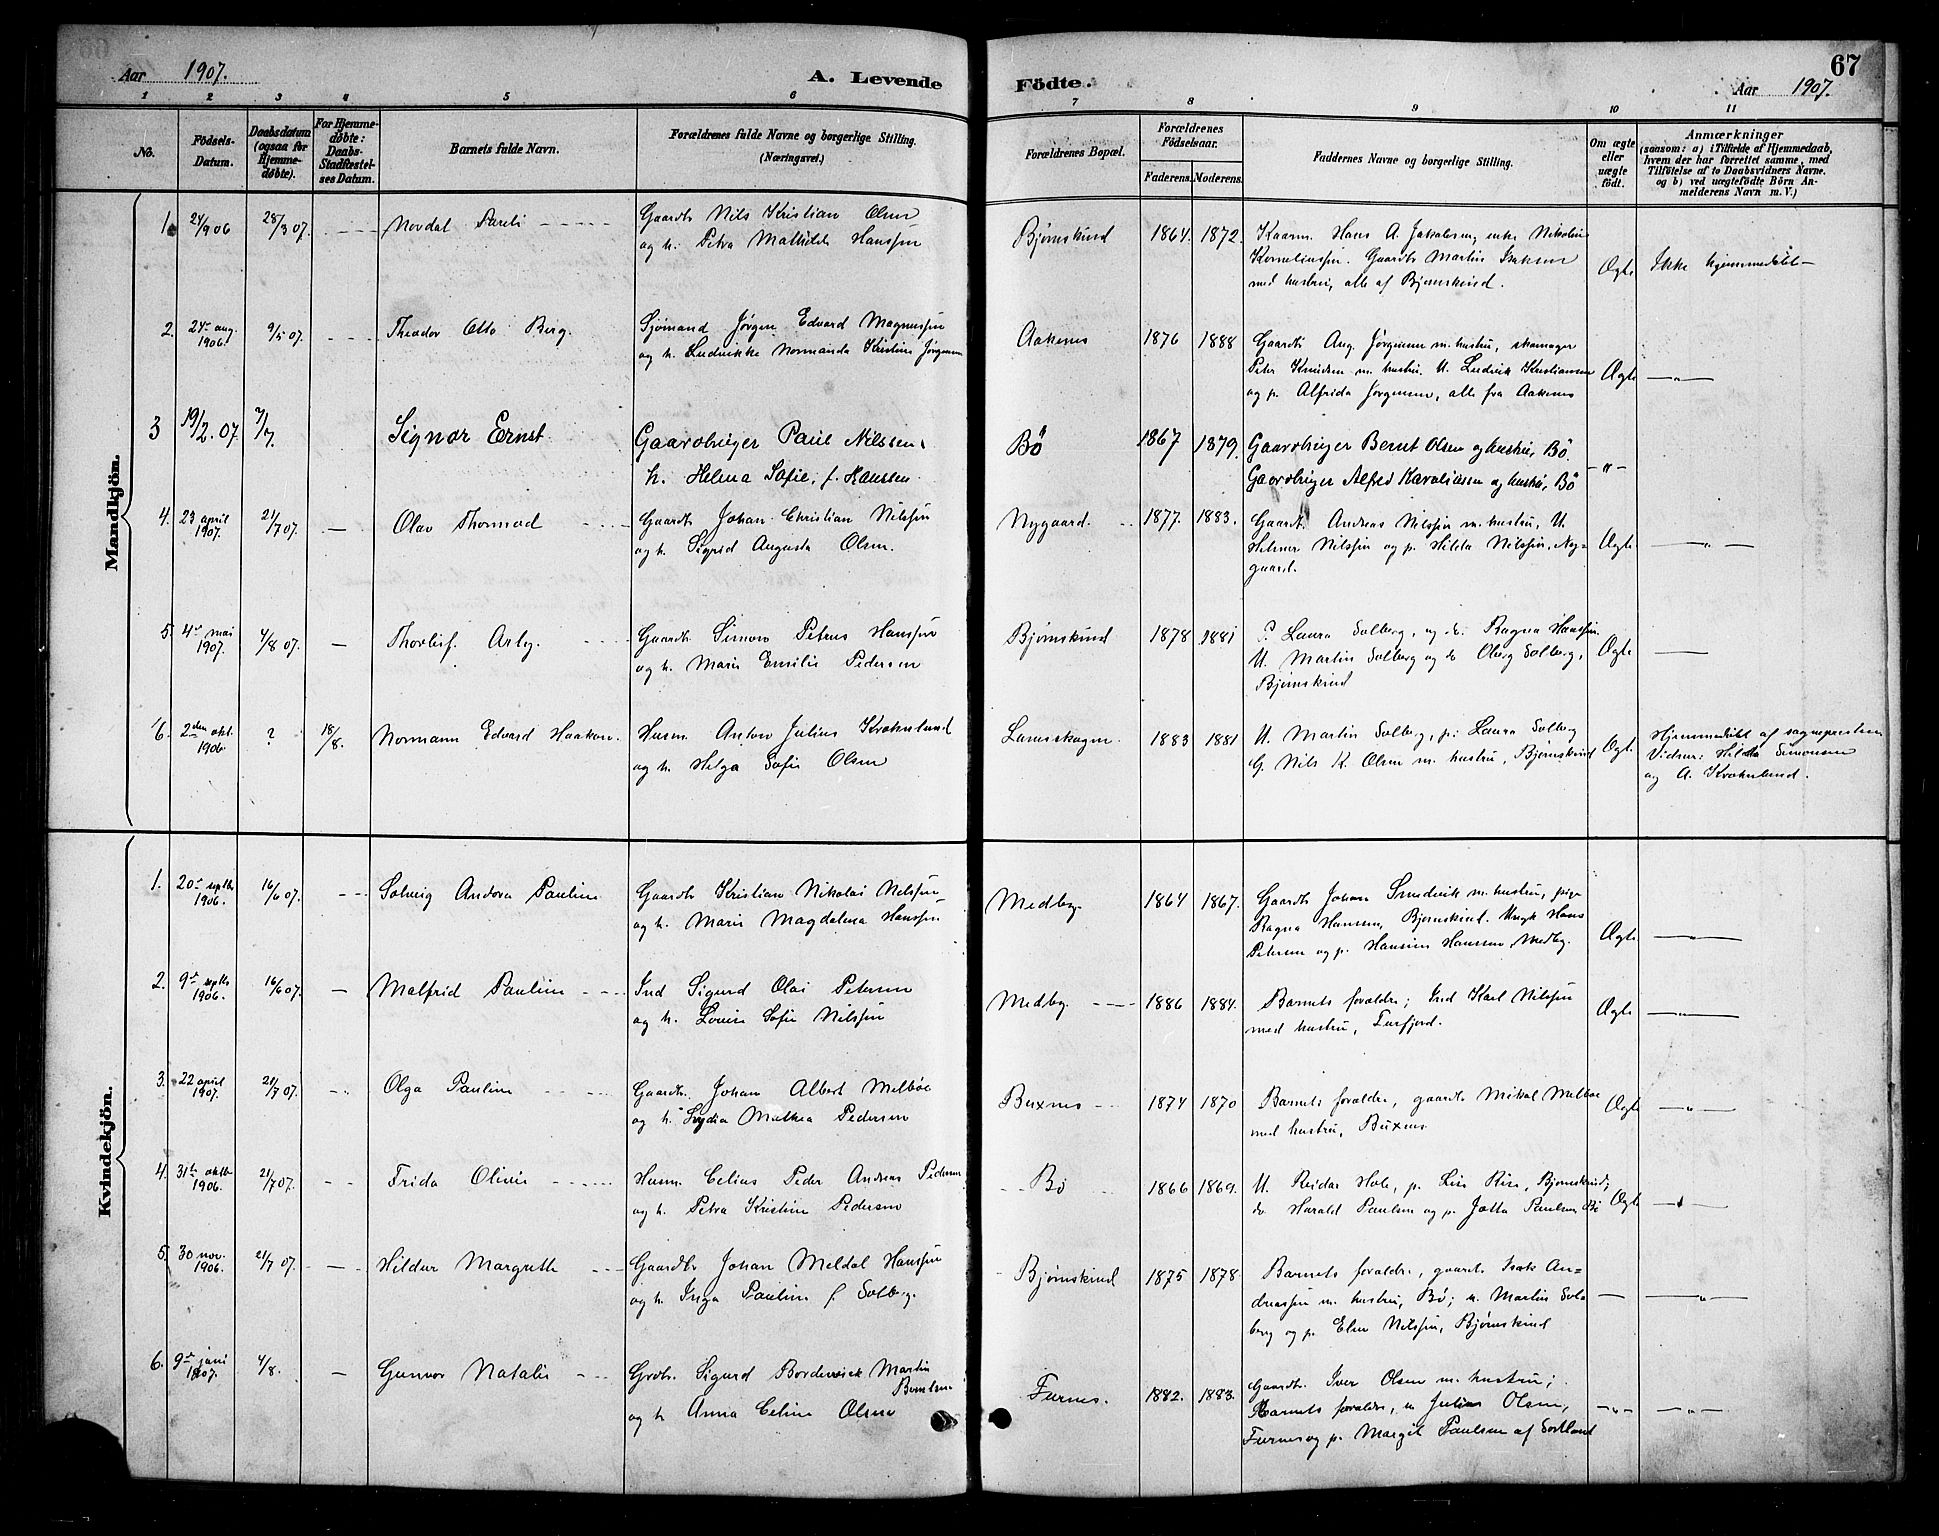 67
Aar 1907. A. Levende Födte. Aar 1907.
1 2 3 4 5 6 7 8 9 10 11
No.
Födsels-
Datum.
Daabsdatum
(ogsaa for
Hjemme-
døbte).
For Hjemme-
døbte:
Daabs-
Stadfæstel-
ses Datum.
Barnets fulde Navn.
Forældrenes fulde Navne og borgerlige Stilling.
(Næringsvei.)
Forældrenes Bopæl.
Forældrenes
Födselsaar.
Faderens. Moderens.
Faddernes Navne og borgerlige Stilling.
Om ægte
eller
uægte
født.
Anmærkninger
(saasom: a) i Tilfælde af Hjemmedaab,
hvem der har forrettet samme, med
Tilføielse af to Daabsvidners Navne.
og b) ved uægtefødte Børn An-
melderens Navn m. V.)
Mandkjön.
1. 24/9 06 28/3 07. Nordal Pareli
Gaardbr Nils Kristian Olsen
og h. Petra Mathilde Hanssen
Bjørnskind 1864. 1872.
Kaarm. Hans A. Jakobsen, enke Nikoline
Korneliussen. Gaardbr Martin Isaksen
med hustru, alle af Bjørnskind.
Ægte Ikke hjemmedøbt
2. 24de aug. 1906. 9/5 07. Theodor Otto Berg.
Sjømand Jørgen Edvard Magnussen
og h. Ludvikke Normanda Kristine Jørgensen
Aakenes 1876 1888
Gaardbr Aug. Jørgensen m. hustru, skomager
Peter Knudsen m. hustru. U. Ludvik Kristiansen
og p. Alfrida Jørgensen, alle fra Aakenes
Ægte —"—
3 19/2. 07. 7/7. Signor Ernst.
Gaardbruger Paul Nilssen,
h. Helma Sofie, f. Hanssen.
Bö 1867 1879.
Gaardbruger Bernt Olsen og hustru, Bö.
Gaardbruger Alfred Karoliussen og hustru, Bö
-"-
4. 23 april 1907. 21/7 07. — Olav Thormod
Gaardbr Johan Christian Nilssen
og h. Sigrid Augusta Olsen.
Nygaard. 1877. 1883.
Gaardbr. Andreas Nilssen m. hustru, U.
Helmer Nilssen og p. Hilda Nilssen, Ny=
gaard.
Ægte —"—
5. 4de mai 1907. 4/8 07. — Thorleif Arly.
Gaardbr Simon Petrus Hanssen
og h. Marie Emilie Pedersen
Bjørnskind 1878 1881
P. Laura Solberg, og do. Ragna Hanssen.
U. Martin Solberg og do Oberg Solberg,
Bjørnskind
Ægte —
6. 2den okt. 1906. ? 18/8. Normann Edvard Haakon.
Husm. Anton Julius Krokenlund
og h. Helga Sofie Olsen
Lanesskogen 1883 1881
U. Martin Solberg, p. Laura Solberg
G. Nils K. Olsen m. hustru, Bjørnskind
Ægte.
Hjemmedøbt af sognepresten
Vidner: Hilda Simonsen
og A. Krokenlund.
Kvindekjön.
1. 20de septbr 1906. 16/6 07. Solveig Andora Pauline
Gaardbr Kristian Nikolai Nilssen
og h. Marie Magdalena Hanssen
Medby. 1864 1867.
Gaardbr Johan Smedvik m. hustru, pige
Ragna Hanssen, Bjørnskind. Ungk Hans
Petersen og p. Hansine Hanssen, Medby.
Ægte —"—
2. 9de septbr 1906. 16/6 07. — Malfrid Pauline
Ind Sigurd Olai Petersen
og h. Lovise Sofie Nilssen
Medby. 1886 1884.
Barnets foreldre; Ind Karl Nilssen
med hustru, Furfjord.
Ægte —"—
3. 22 april 1907. 21/7 07. Olga Pauline
Gaardbr. Johan Albert Melbøe
og h. Lydia Mathea Pedersen
Buxnes 1874 1870
Barnets foreldre, gaardbr Mikal Melbøe
med hustru, Buxnes
Ægte —"—
4. 31te oktbr 1906. 21/7 07. Frida Olivie
Husm. Celius Peder Andreas Pedersen
og h. Petra Kristine Pedersen
Bø 1866 1869.
U. Reidar Hole, p. Lise Rise, Bjørnskind;
do Harald Paulsen og p. Jotta Paulsen Bø
Ægte —"—
5. 30 nov. 1906. 21/7 07. — Hildur Margrethe
Gaardbr Johan Meldal Hanssen
og h. Inga Pauline f. Solberg.
Bjørnskind 1875 1878
Barnets foreldre, gaardbr Isak An=
dreassen m. hustru, Bø; u. Martin Sol=
berg og p. Elen Nilssen, Bjørnskind
— —"—
6. 9de juni 1907. 4/8. — Gunvor Natalie
Grdbr. Sigurd Bordevick Martin
Berntsen
og h Anna Celine Olsen
Furnes. 1882. 1883.
Gaardbr. Iver Olsen m. hustru;
Barnets foreldre, u Julius Olsen,
Furnes og p. Margit Paulsen af Sortland
-"- —"—